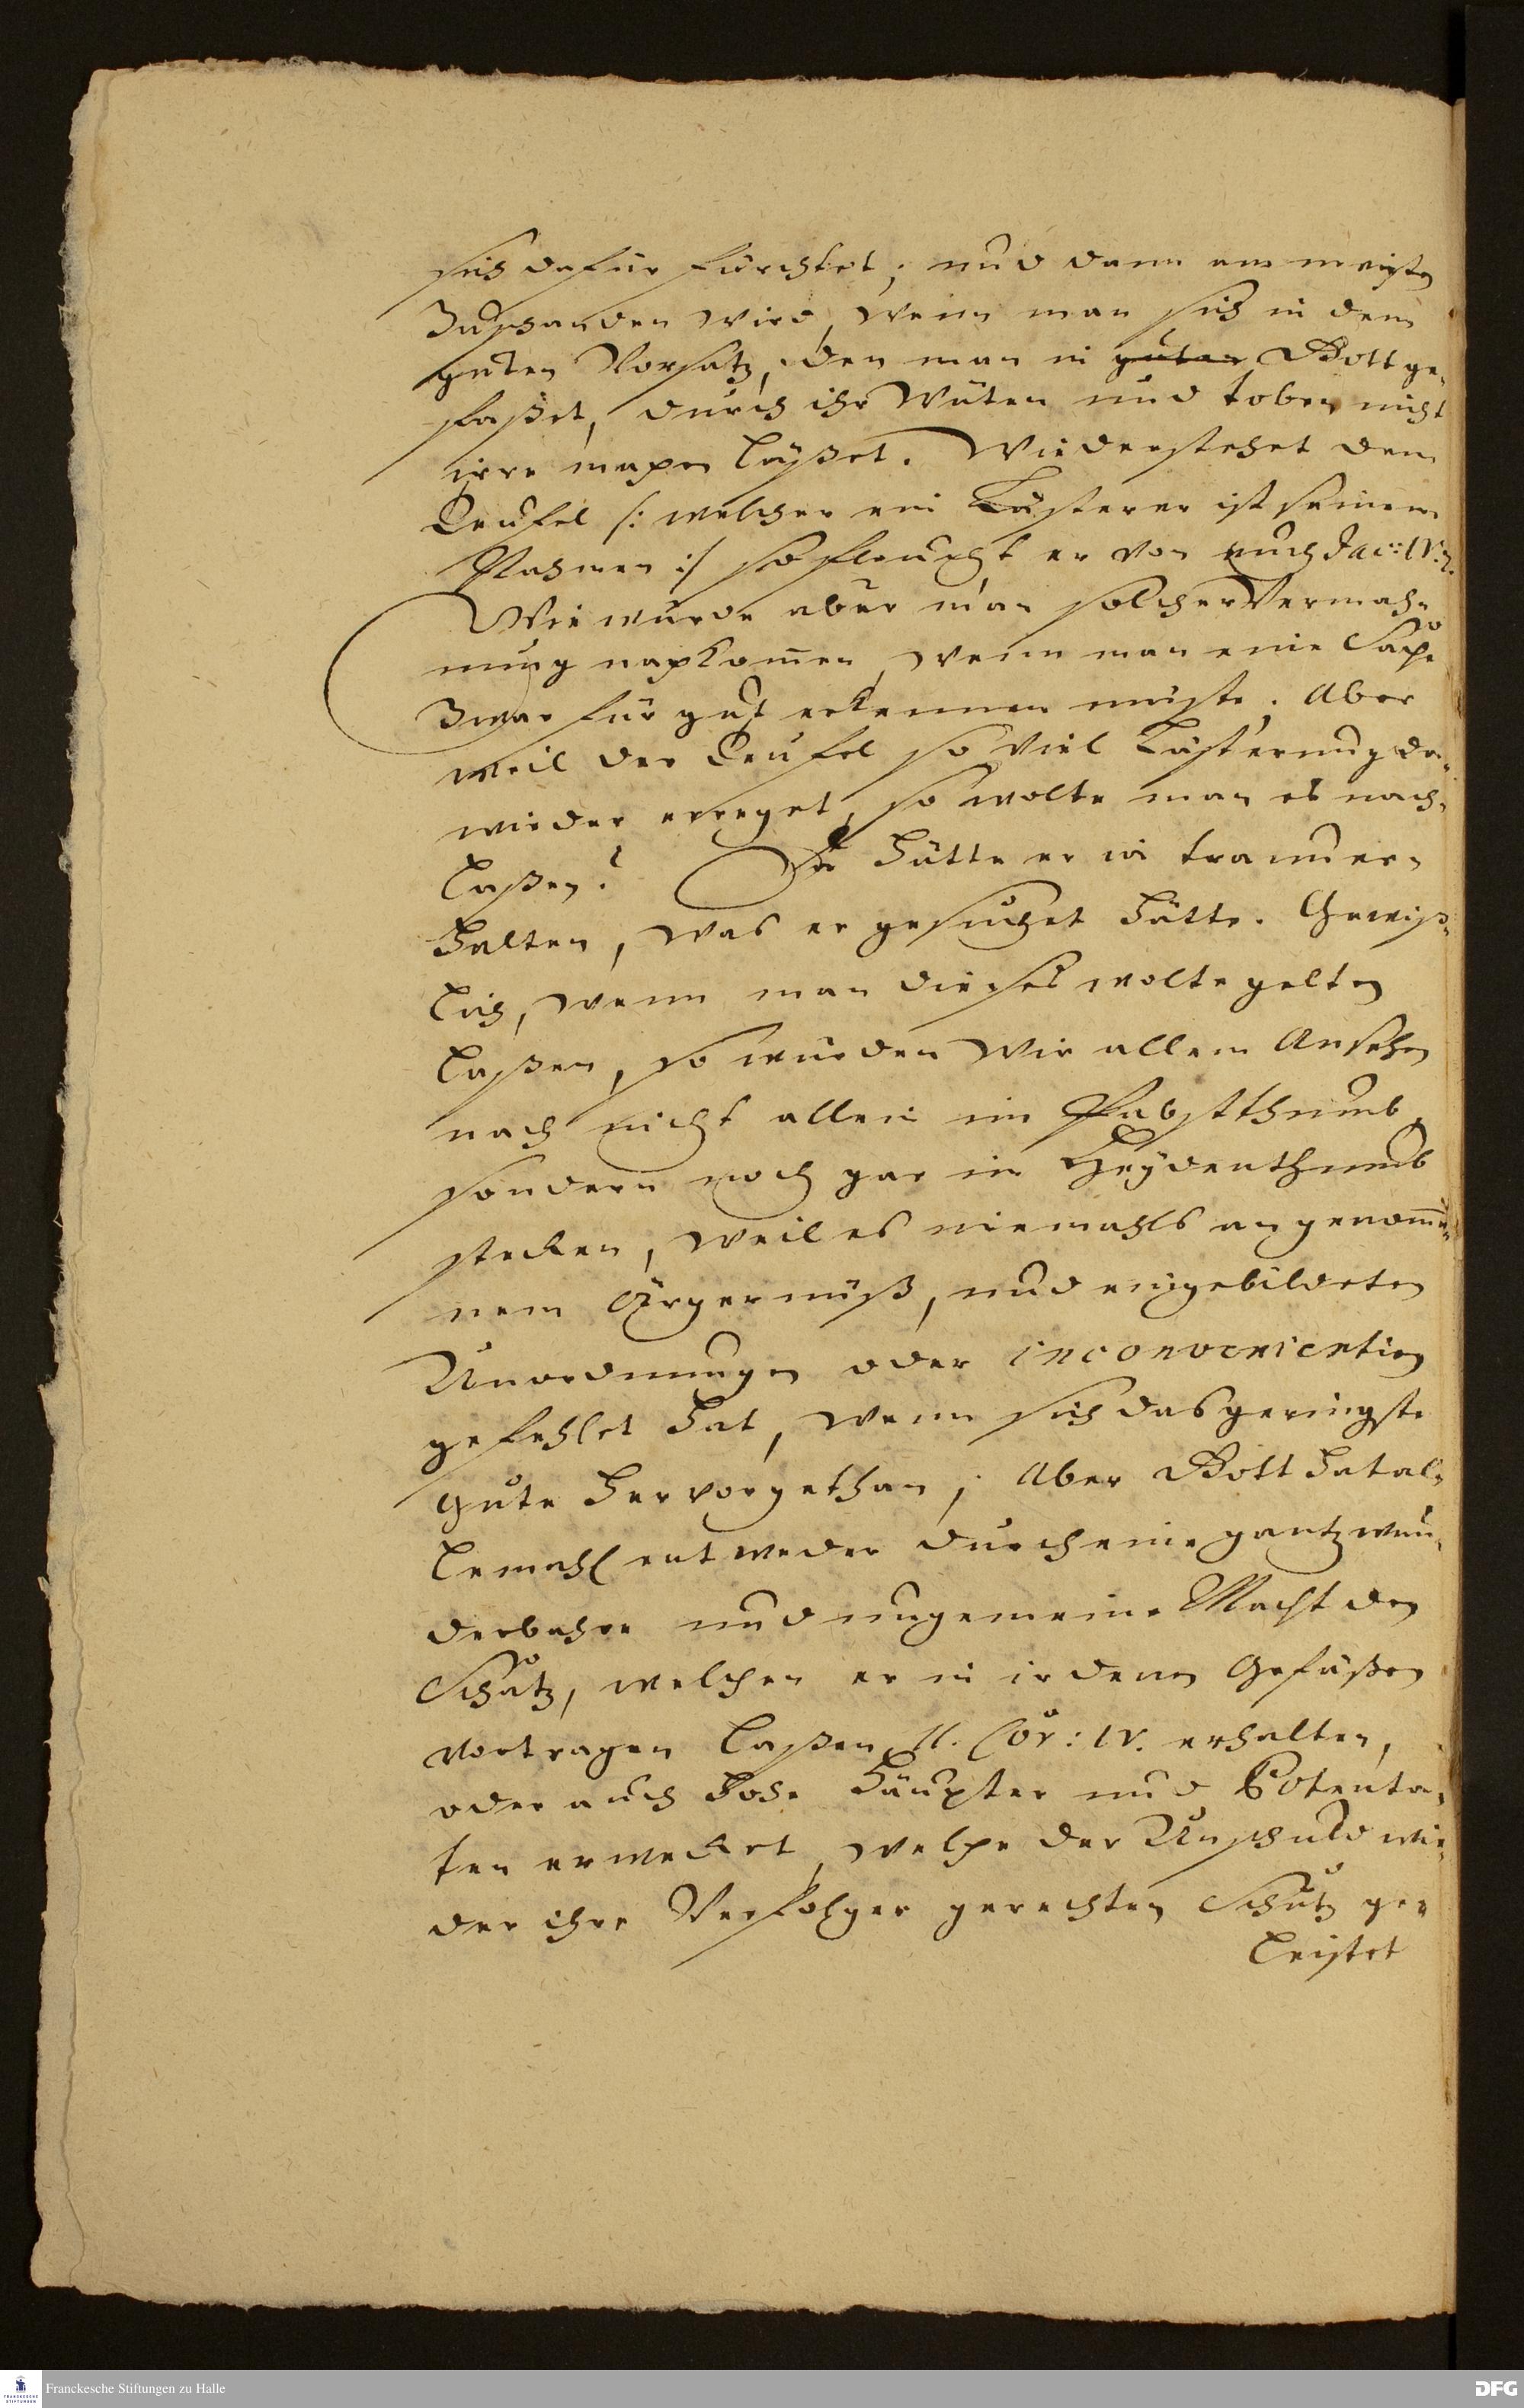 sich dafür fürchtet; und dann am meisten
Zuschanden wird, wenn man sich in dem
guten Vorsatz, den man in guten Gott ge-
faßet, durch ihr Wüten und toben nicht
irre machen läßet. Wiederstehet dem
Teufel /: welcher ein Lästerer ist seinem
Nahmen :/ so fleucht er von euch Jac: IV. 7.
Wie würde aber man solcher Vermah-
nung nachkom̅en, wenn man eine Sache
Zwar für gut erkennen müste. Aber
weil der Teufel so viel Lästerung da-
wieder erreget, so wolte man es nach-
laßen? So hätte er in traun er-
halten, was er gesuchet hätte. Gewiß-
lich, wenn man dieses wolte gelten
laßen, so würden wir allem Ansehen
nach nicht allein im Pabstthumb,
sondern noch gar im Heydenthumb
stecken, weil es niemahls angenom̅e-
nem Ärgernüß, und eingebildeten
Unordnungen oder inconvenientien
gefehlet hat, wenn sich das geringste
Gute hervorgethan; Aber Gott hat al-
lemahl entweder durch eine gantz wun-
derbahre und ungemeine Macht den
Schatz, welchen er in irdenen Gefäßen
vortragen laßen II. Cor: IV. erhalten,
oder auch hohe Häupter und Potenta-
ten erwecket, welche der Unschuld wie-
der ihre Verfolger gerechten Schutz ge-
leistet
Franckesche Stiftungen zu Halle
DFG